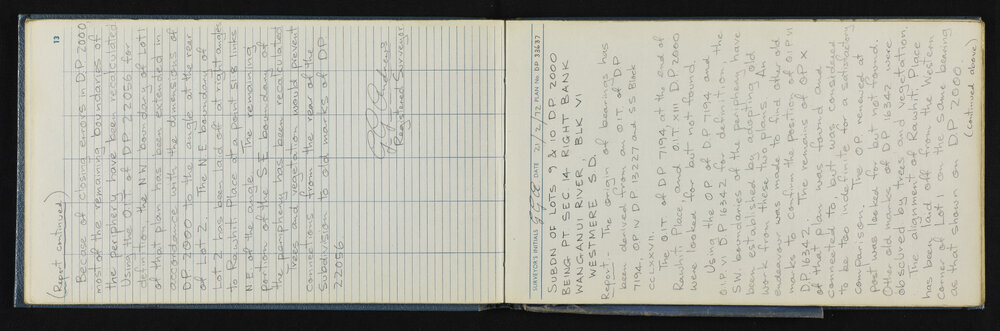 SURVEYOR'S INITIALS DATE 21/2/72 PLAN No. DP 33637
SUBDN OF LOTS 9 & 10 DP 2000
BEING PT SEC 14 RIGHT BANK
WANGANUI RIVER, BLK VI
WESTMERE S.D.
Report - The origin of bearings has
been derived from an O.I.T. of DP
7194, OP IV DP 13227 and SS Block
CCLXXXVII.
The O.I.T of DP 7194, at the end of
Rawhiti Place, and O.I.T XIII DP 2000
were looked for but not found.
Using the OP of DP 7194 and
O.I.P VI DP 16342 for definition the
S.W. boundaries of the periphery have
been established by adopting old
work from these two plans. An
endeavour was made to find other old
marks to confirm the position of O.I.P VI
DP 16342. The remains of OP X
of that plan was found and
connected to, but was considered
to be too indefinite for a satisfactory
comparison. The OP renewed at
Post was looked for but not found.
Other old marks of DP 16342 were
obscured by trees and vegetation.
The alignment of Rawhiti Place
has been laid off from the Western
corner of Lot 1 on the same bearing
as that shown on DP 2000
(continued above)
13
(Report continued)
Because of closing errors in DP 2000,
most of the remaining boundaries of
the periphery have been recalculated
Using the O.I.T of DP 22056 for
definition the NW boundary of Lot 1
of that plan has been extended in
accordance with the dimensions of
DP 2000 to the angle at the rear
of Lot 2. The NE boundary of
Lot 2 has been laid off at right angles
to Rawhiti Place at a point 518 links
NE of the angle. The remaining
portion of the SE boundary of
the periphery has been recalculated
Trees and vegetation would prevent
connections from the rear of the
subdivision to old marks of DP
22056
Registered Surveyor